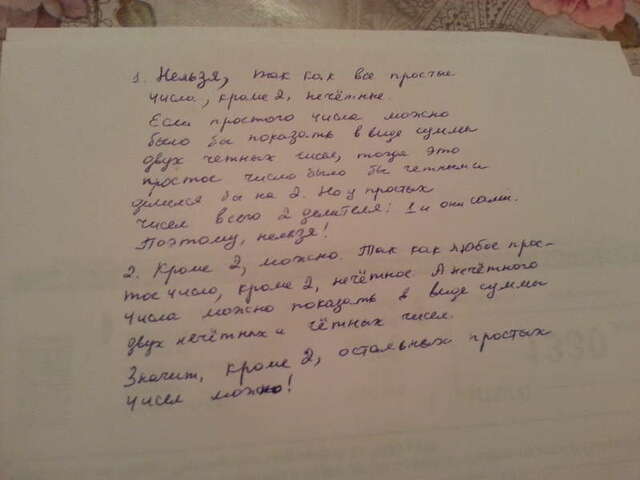 1. Нельзя, так как все простые
числа, кроме 2, нечётные.
Если простого числа можно
было бы показать в виде суммы
двух четных чисел, тогда это
простое число было бы четным и
делился бы на 2. Но у простых
чисел всего 2 делителя: 1 и они сами.
Поэтому, нельзя!
2. Кроме 2, можно. Так как любое прос-
тое число, кроме 2, нечётное. А нечётного
числа можно показать в виде суммы
двух нечётных и чётных чисел.
Значит, кроме 2, остальных простых
чисел можно!
1330